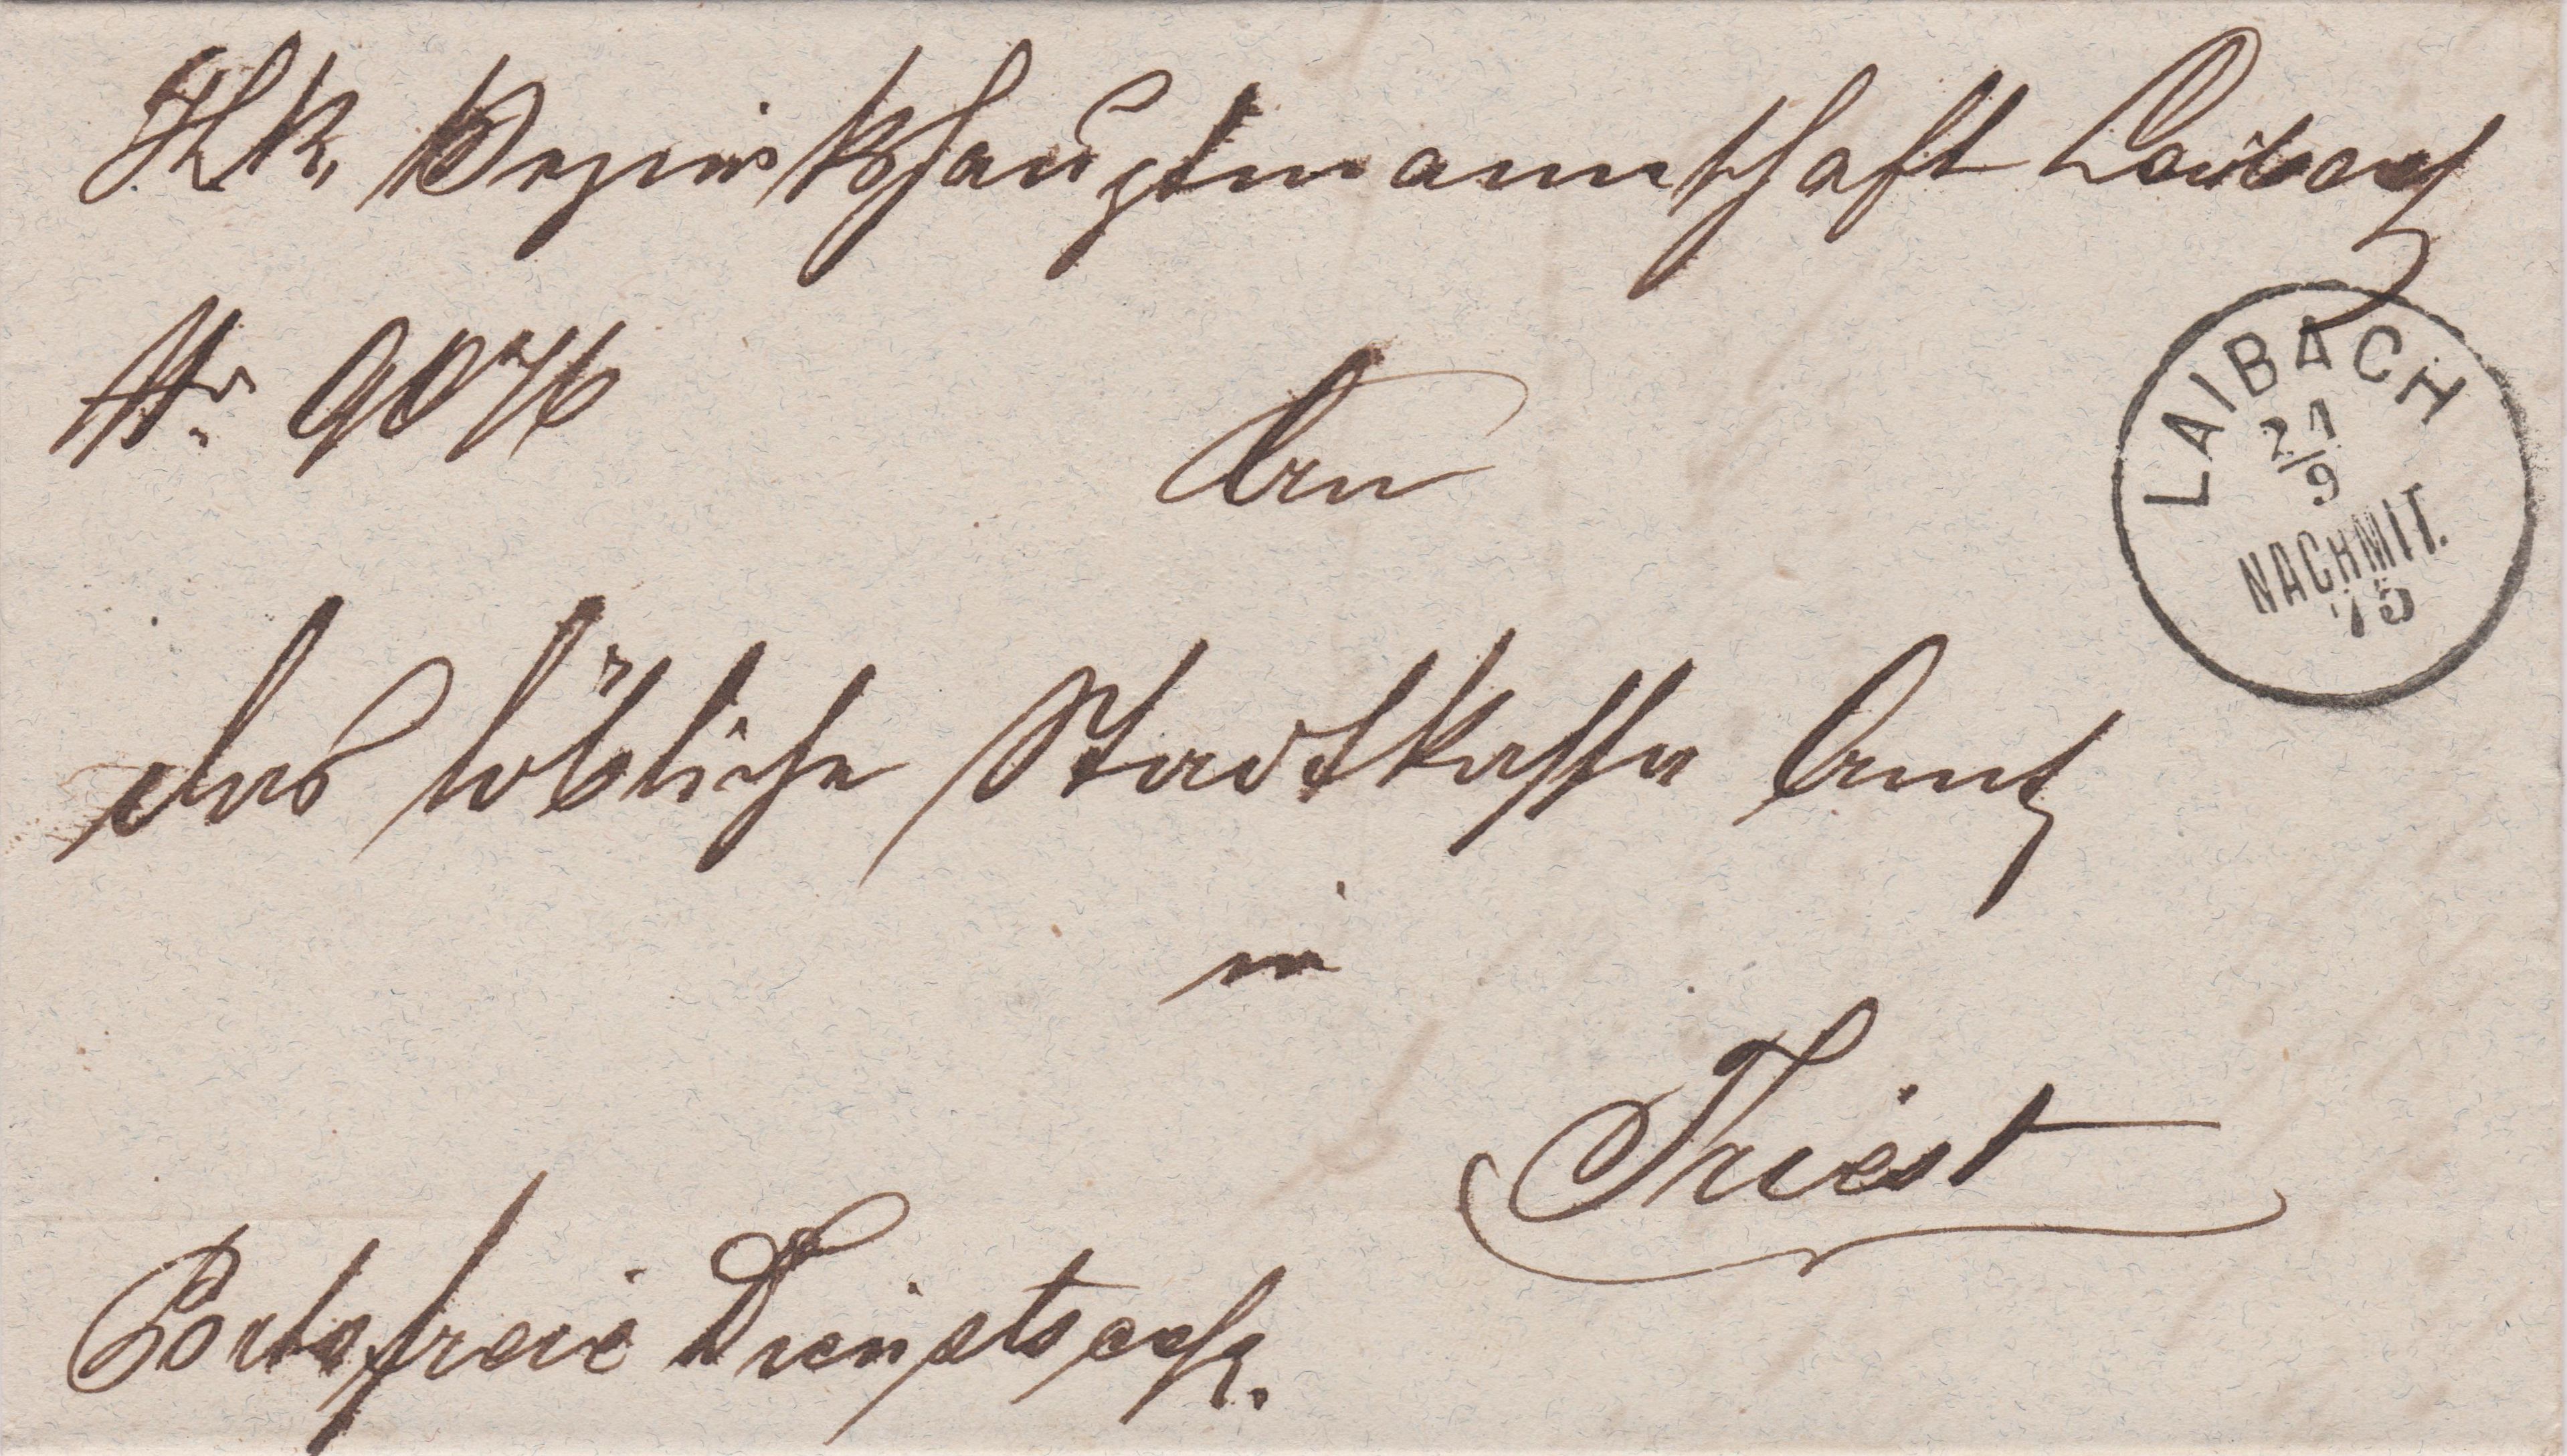 K.k. Bezirkshauptmannschaft Laibach
Nr. 9076
An
LAIBACH
21/9
NACHMIT.
75
das löbliche Stadtkasse Amt
in
Triest
Portofreie Dienstsache.